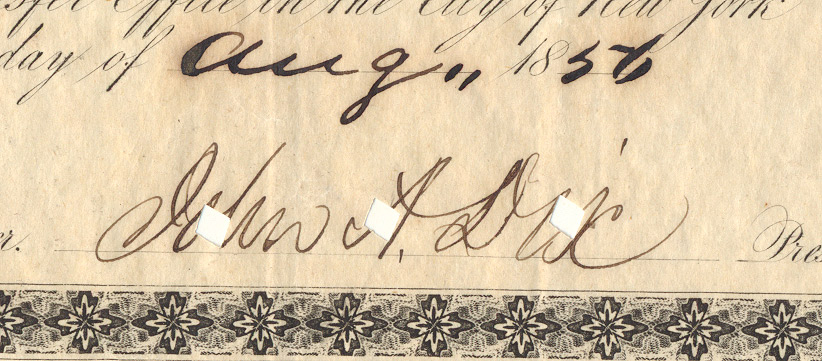 sfer Office in the City of New York
day of Aug,, 1856
er. John A. Dix Pres